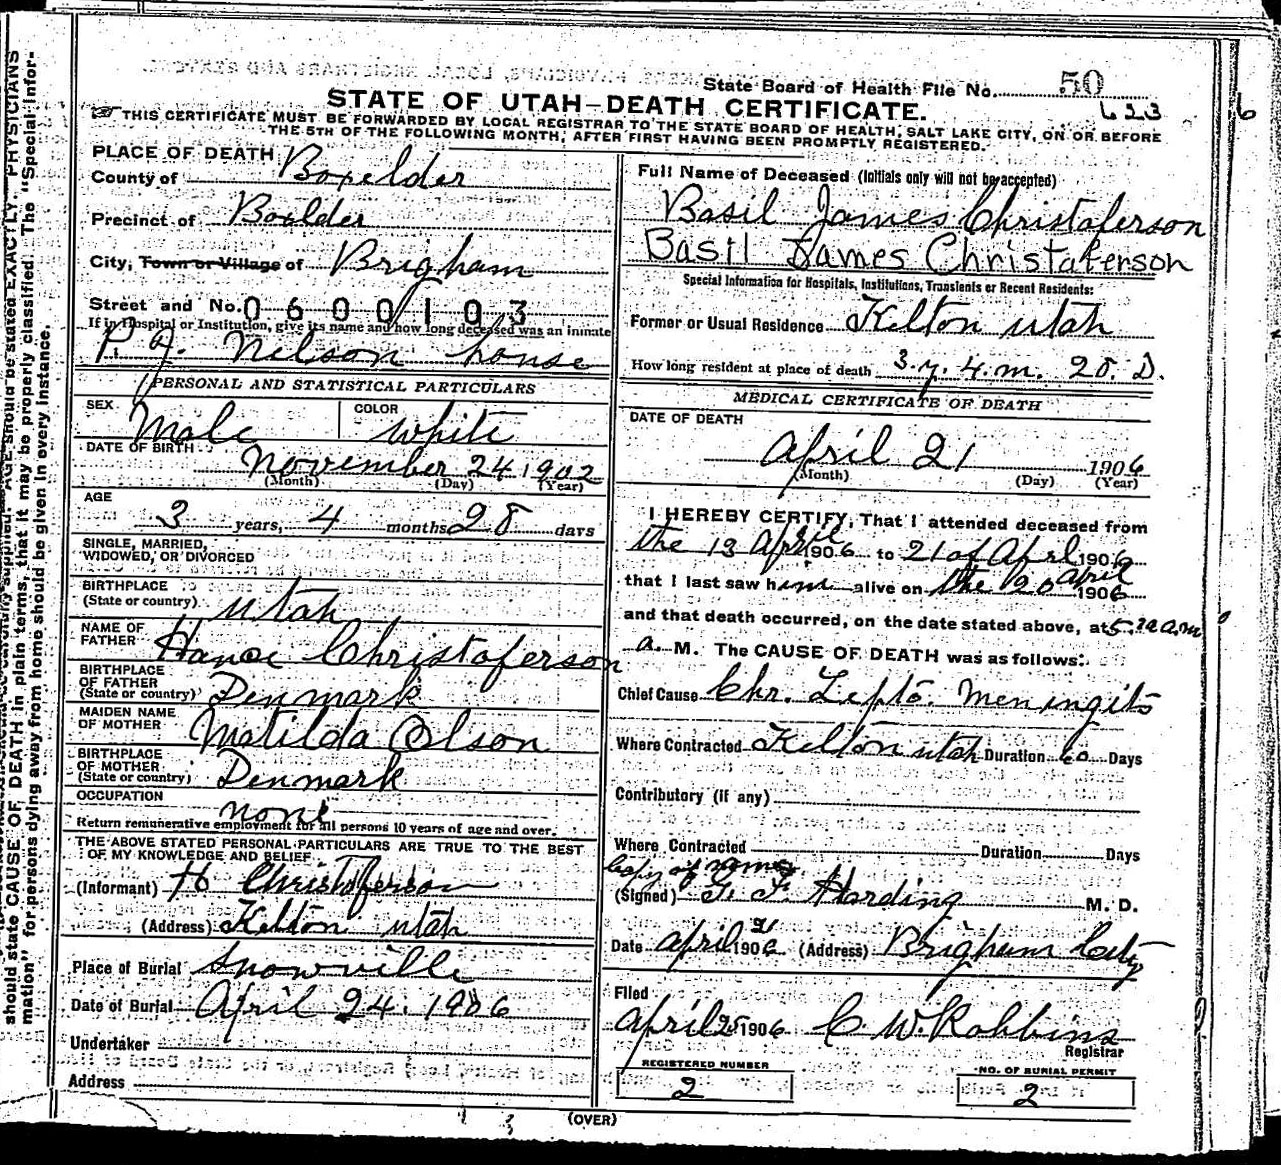 State Board of Health File No. 50
623
6
STATE OF UTAH—DEATH CERTIFICATE.
THIS CERTIFICATE MUST BE FORWARDED BY LOCAL REGISTRAR TO THE STATE BOARD OF HEALTH, SALT LAKE CITY, ON OR BEFORE
THE 5TH OF THE FOLLOWING MONTH, AFTER FIRST HAVING BEEN PROMPTLY REGISTERED.
PLACE OF DEATH
County of Boxelder
Precinct of Boxlder
City, Town or Village of Brigham
Street and No. 0600193
If in Hospital or Institution, give its name and how long deceased was an inmate
P. J. Nelson house
PERSONAL AND STATISTICAL PARTICULARS
SEX Male COLOR White
DATE OF BIRTH November 24 1902
(Month) (Day) (Year)
AGE
3 years, 4 months 28 days
SINGLE, MARRIED,
WIDOWED, OR DIVORCED
BIRTHPLACE
(State or country) Utah
NAME OF
FATHER Hance Christoferson
BIRTHPLACE
OF FATHER
(State or country) Denmark
MAIDEN NAME
OF MOTHER Matilda Olson
BIRTHPLACE
OF MOTHER
(State or country) Denmark
OCCUPATION none
Return remunerative employment for all persons 10 years of age and over.
THE ABOVE STATED PERSONAL PARTICULARS ARE TRUE TO THE BEST
OF MY KNOWLEDGE AND BELIEF
(Informant) H Christoferson
(Address) Kelton Utah
Place of Burial Snowville
Date of Burial April 24. 1906
Undertaker
Address
Full Name of Deceased (Initials only will not be accepted)
Basil James Christoferson
Basil James Christaferson
Special Information for Hospitals, Institutions, Transients or Recent Residents:
Former or Usual Residence Kelton Utah
How long resident at place of death 3. y. 4. m. 28. D.
MEDICAL CERTIFICATE OF DEATH
DATE OF DEATH
April 21 1906
(Month) (Day) (Year)
I HEREBY CERTIFY, That I attended deceased from
the 13 April 1906 to 21 of Aprl 1906
that I last saw him alive on the 20 April 1906
and that death occurred, on the date stated above, at
a. M. The CAUSE OF DEATH was as follows:
Chief Cause Chr. Lepto. Meningits
Where Contracted Kelton Utah Duration 60 Days
Contributory (if any)
Where Contracted Duration Days
Copy of name
(Signed) F. Harding M. D.
Date April 1906 (Address) Brigham City
Filed
April 25 1906 C. W. Robbins
Registrar
REGISTERED NUMBER
2
NO. OF BURIAL PERMIT
2
(OVER)
AGE should be stated EXACTLY. PHYSICIANS
should state CAUSE OF DEATH in plain terms, that it may be properly classified. The "Special Infor-
mation" for persons dying away from home should be given in every instance.